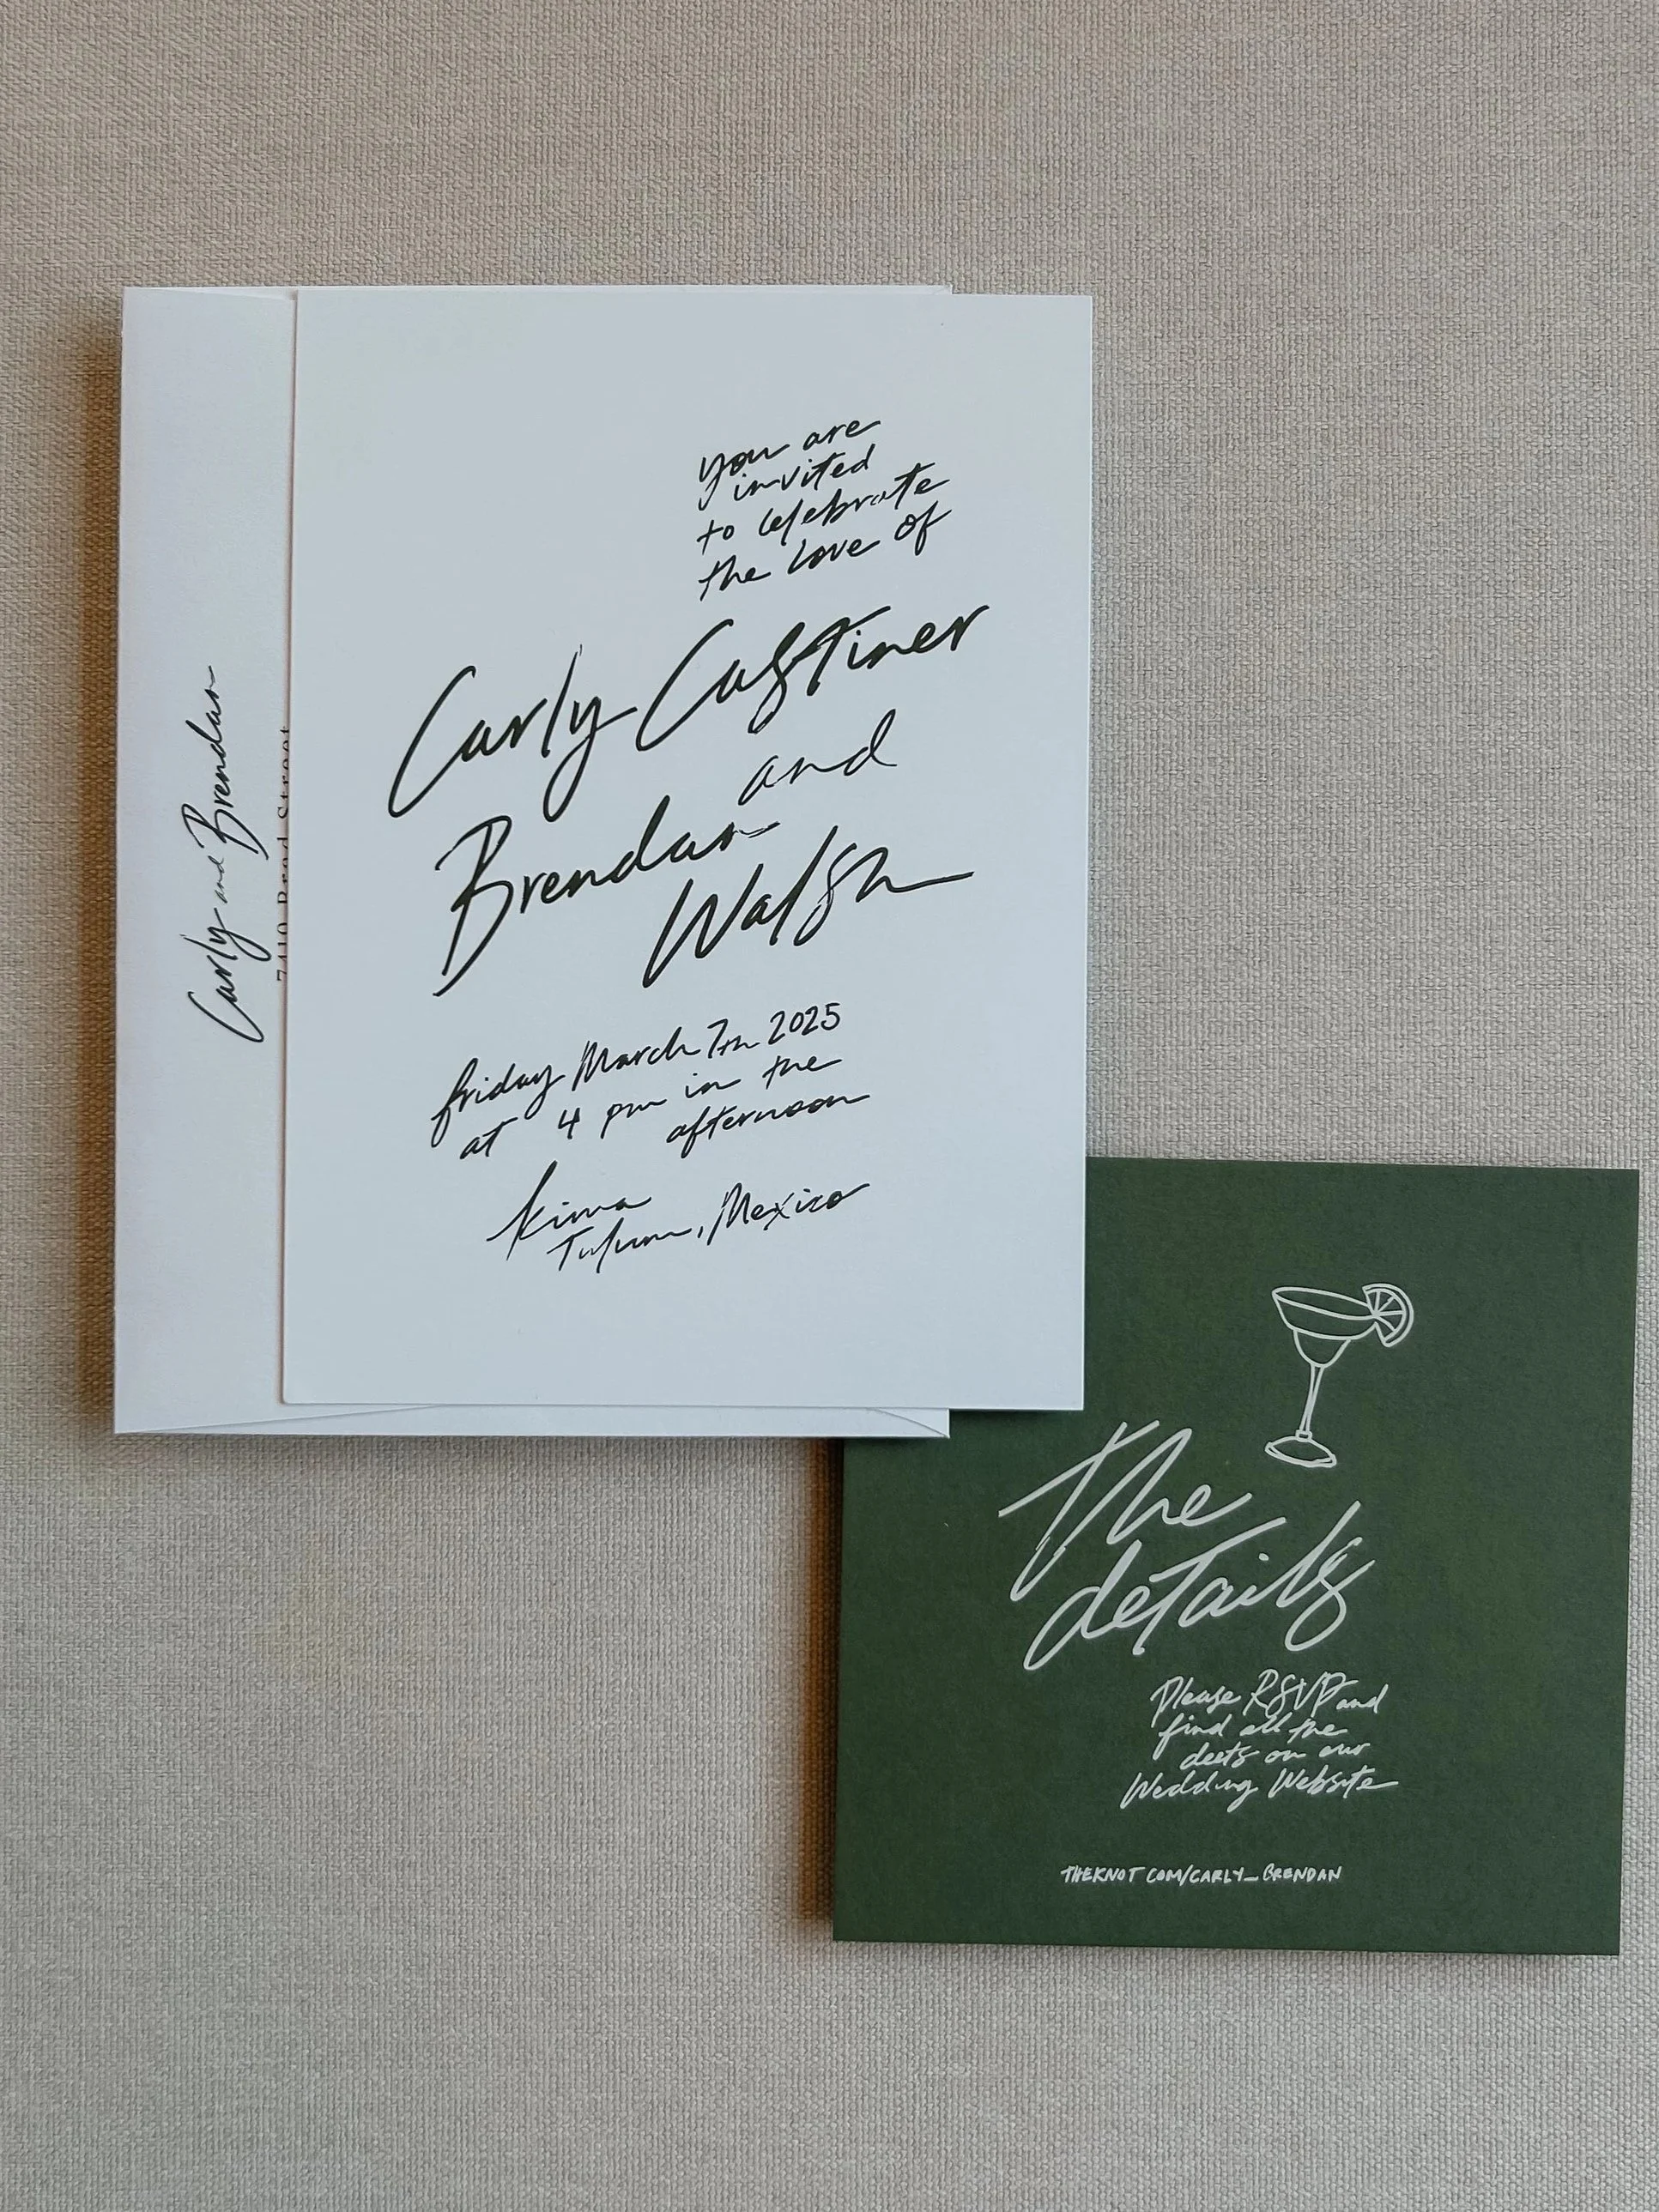 Carly and Brendan
you are
invited
to celebrate
the love of
Carly Castiner
and
Brendan
Walsh
friday March 7th 2025
at 4 pm in the
afternoon
kima
Tulum, Mexico
The
details
Please RSVP and
find all the
deets on our
Wedding Website
THEKNOT.COM/CARLY_BRENDAN